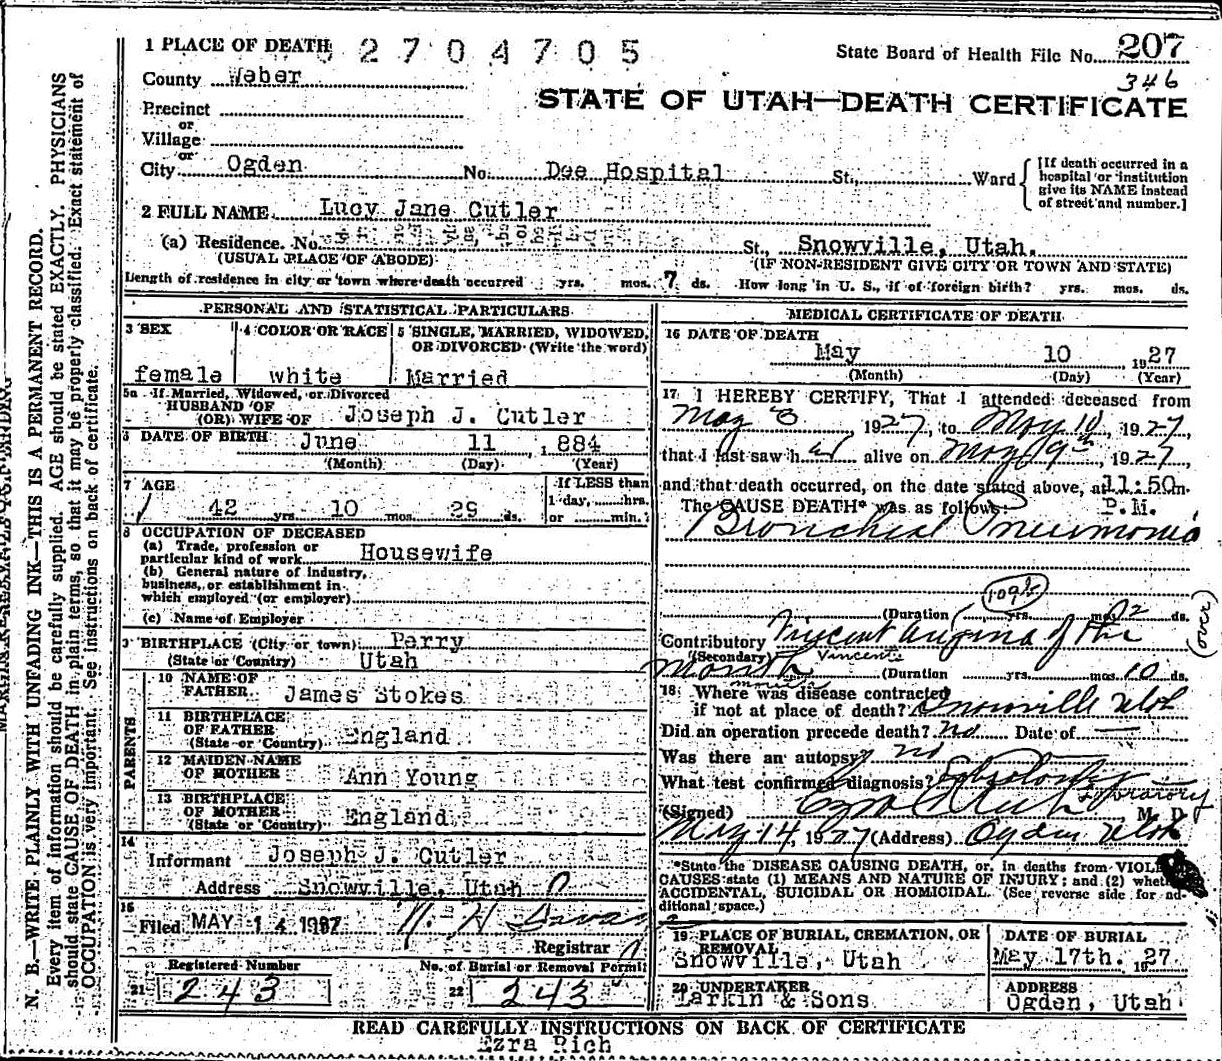 1 PLACE OF DEATH 2704705 State Board of Health File No. 207
346
County Weber
STATE OF UTAH—DEATH CERTIFICATE
Precinct
or
Village
or
City Ogden No. Dee Hospital St., Ward
[If death occurred in a hospital or institution give its NAME instead of street and number.]
2 FULL NAME Lucy Jane Cutler
(a) Residence. No. St., Snowville, Utah.
(USUAL PLACE OF ABODE) (IF NON-RESIDENT GIVE CITY OR TOWN AND STATE)
Length of residence in city or town where death occurred yrs. mos. 7 ds. How long in U. S., if of foreign birth? yrs. mos. ds.
PERSONAL AND STATISTICAL PARTICULARS
3 SEX 4 COLOR OR RACE 5 SINGLE, MARRIED, WIDOWED,
OR DIVORCED (Write the word)
female white Married
5a If Married, Widowed, or Divorced
HUSBAND OF
(OR) WIFE OF Joseph J. Cutler
6 DATE OF BIRTH June 11 , 1884
(Month) (Day) (Year)
7 AGE If LESS than
1 day, hrs.
42 yrs. 10 mos. 29 ds. or min.
8 OCCUPATION OF DECEASED
(a) Trade, profession or
particular kind of work Housewife
(b) General nature of industry,
business, or establishment in
which employed (or employer)
(c) Name of Employer
9 BIRTHPLACE (City or town) Perry
(State or Country) Utah
PARENTS
10 NAME OF
FATHER James Stokes
11 BIRTHPLACE
OF FATHER
(State or Country) England
12 MAIDEN NAME
OF MOTHER Ann Young
13 BIRTHPLACE
OF MOTHER
(State or Country) England
14
Informant Joseph J. Cutler
Address Snowville, Utah
15
Filed MAY 14 1927
Registrar
Registered Number No. of Burial or Removal Permit
21 243 22 243
MEDICAL CERTIFICATE OF DEATH
16 DATE OF DEATH
May 10 , 1927
(Month) (Day) (Year)
17 I HEREBY CERTIFY, That I attended deceased from
May 8 1927, to May 10, 1927,
that I last saw her alive on May 9th, 1927,
and that death occurred, on the date stated above, at 11:50 m.
P.M.
The CAUSE DEATH* was as follows:
Bronchial Pneumonia
109
(Duration yrs. mos. 2 ds.
(over)
Contributory Vincent Angina of the
(Secondary) Vincents
Mouth (Duration yrs. mos. 10 ds.
18 Where was disease contracted
if not at place of death? Snowville Utah
Did an operation precede death? no Date of —
Was there an autopsy? no
What test confirmed diagnosis?
Laboratory
(Signed) M. D.
May 14, 1927 (Address) Ogden Utah
*State the DISEASE CAUSING DEATH, or, in deaths from
CAUSES state (1) MEANS AND NATURE OF INJURY; and (2)
ACCIDENTAL, SUICIDAL OR HOMICIDAL. (See reverse side for ad-
ditional space.)
19 PLACE OF BURIAL, CREMATION, OR DATE OF BURIAL
REMOVAL
Snowville, Utah May 17th. 1927
20 UNDERTAKER ADDRESS
Larkin & Sons Ogden, Utah
READ CAREFULLY INSTRUCTIONS ON BACK OF CERTIFICATE
Ezra Rich
N. B.—WRITE PLAINLY WITH UNFADING INK—THIS IS A PERMANENT RECORD.
Every item of information should be carefully supplied. AGE should be stated EXACTLY. PHYSICIANS
should state CAUSE OF DEATH in plain terms, so that it may be properly classified. Exact statement of
OCCUPATION is very important. See instructions on back of certificate.